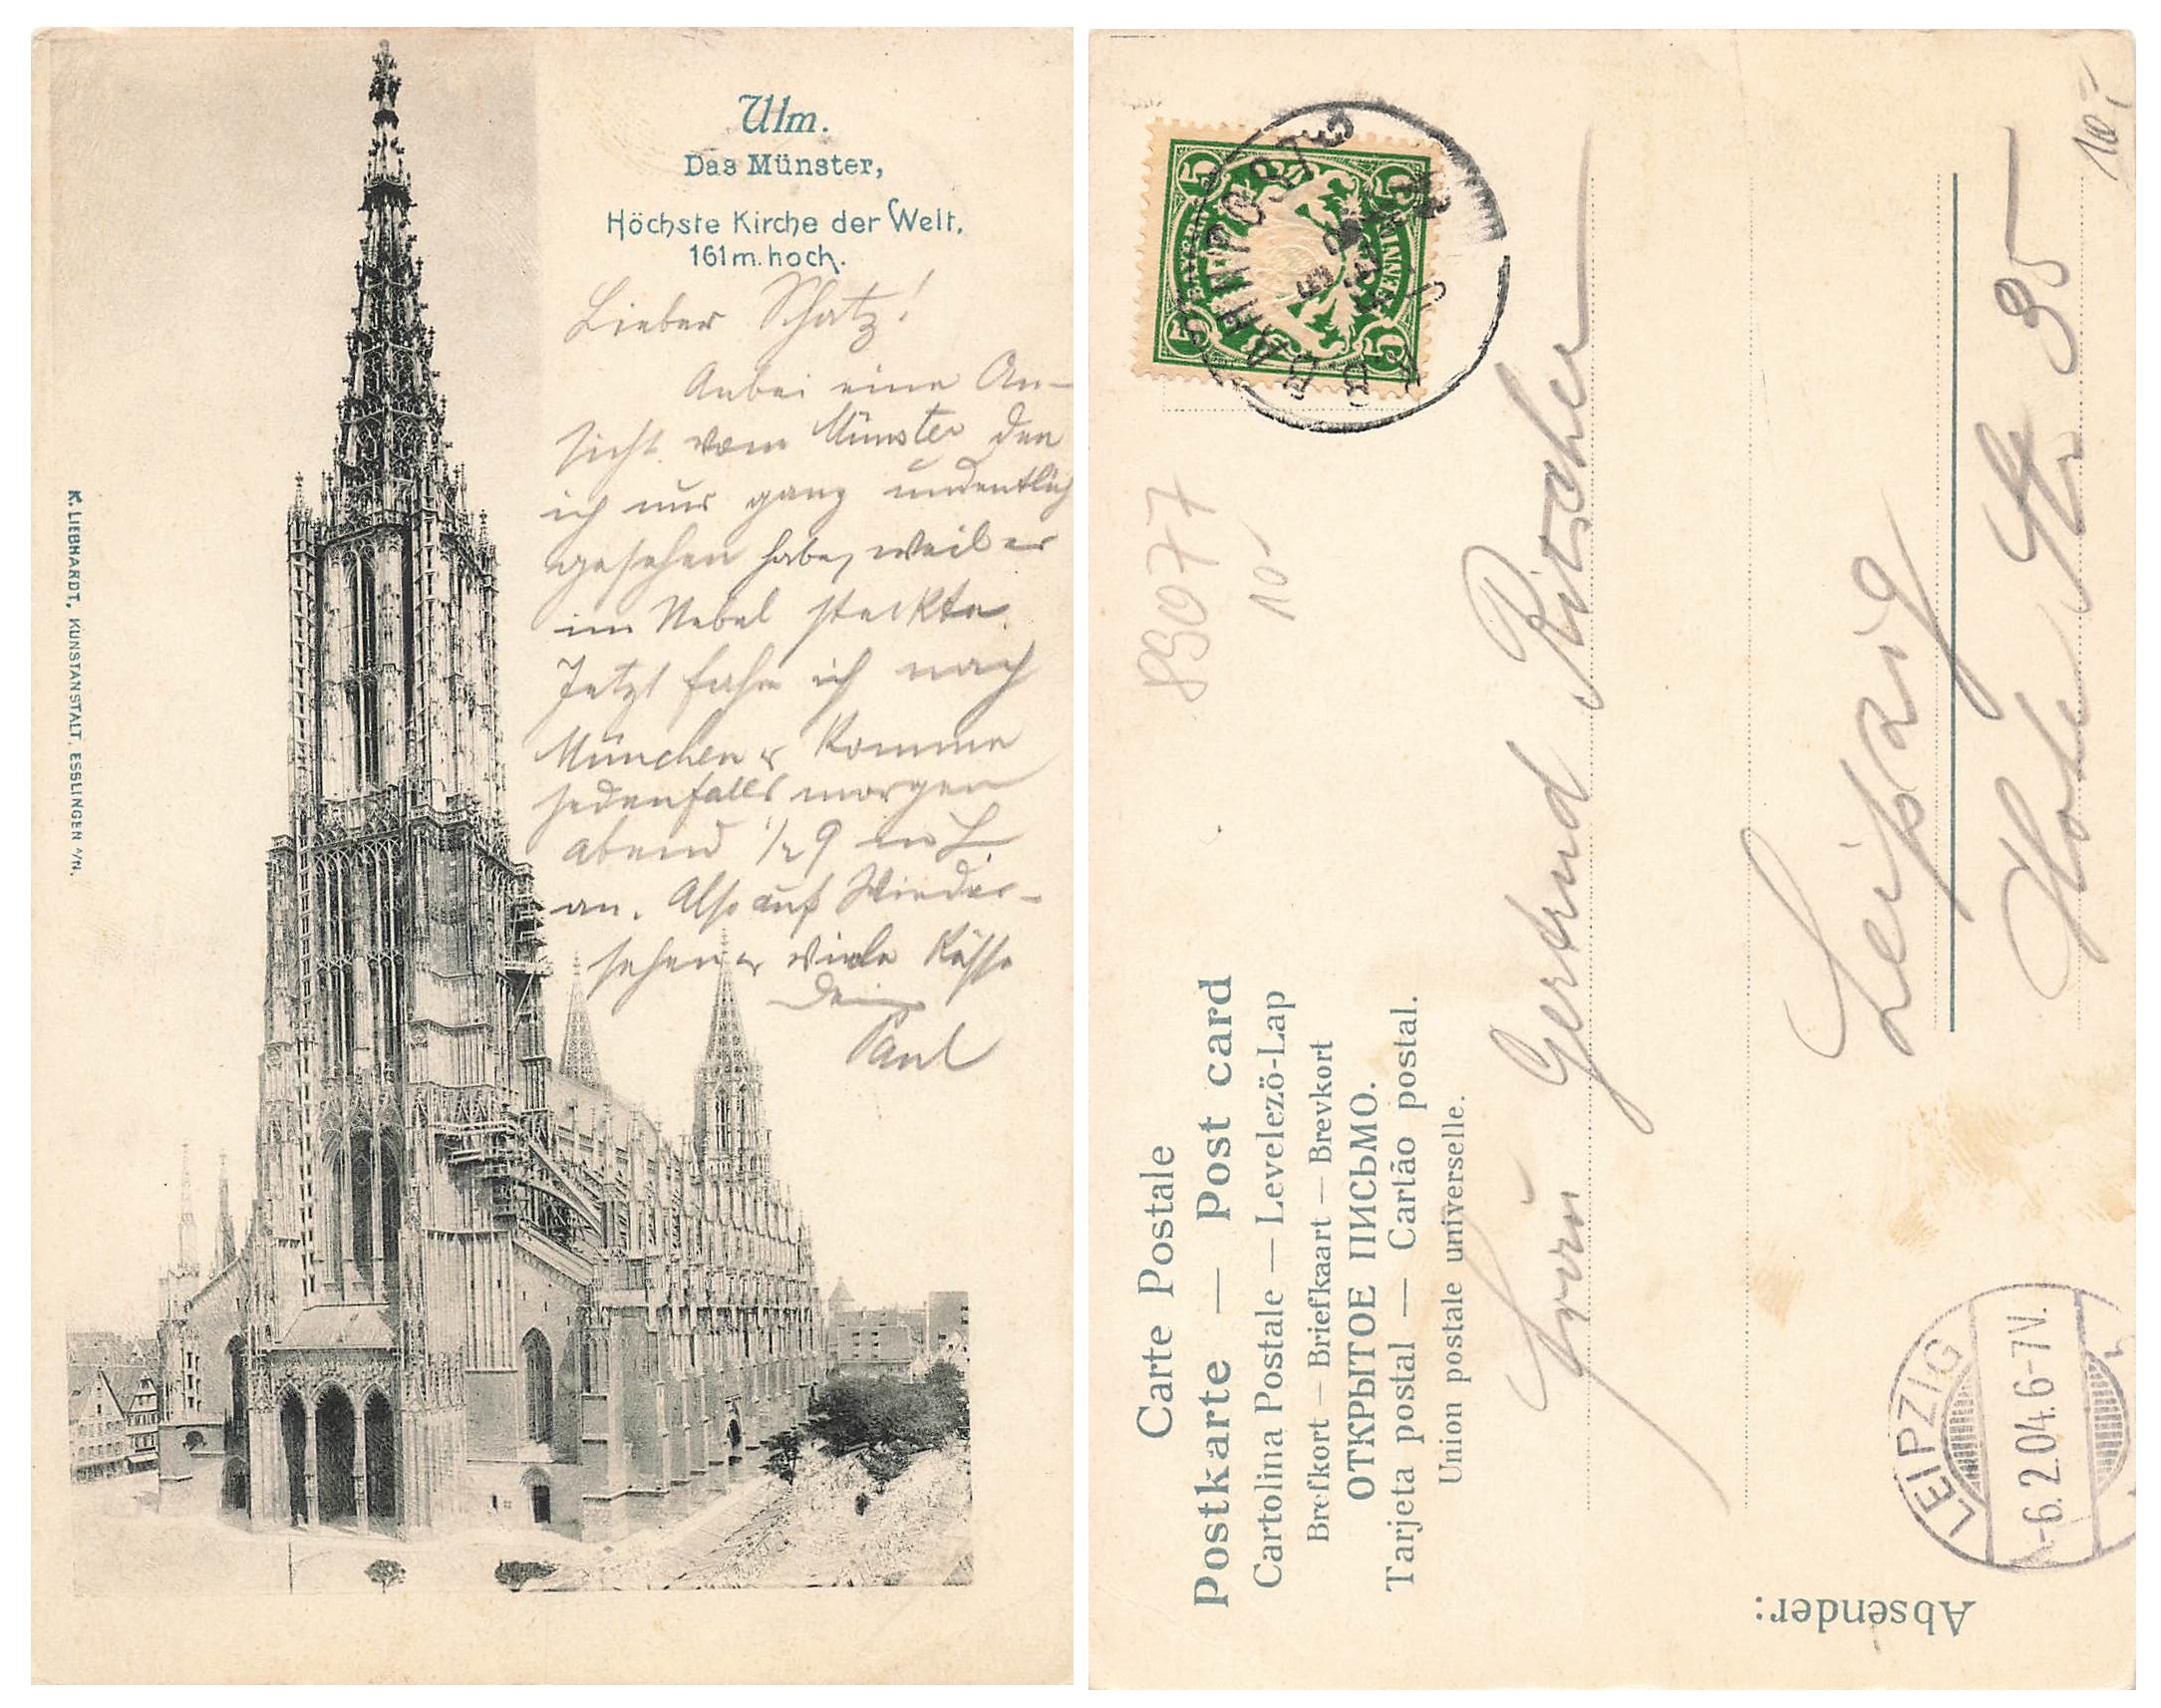 Ulm.
Das Münster,
Höchste Kirche der Welt,
161 m. hoch.
Lieber Schatz!
Anbei eine An-
sicht vom Münster den
ich nur ganz undeutlich
gesehen habe, weil er
im Nebel steckte.
Jetzt fahre ich nach
München & komme
jedenfalls morgen
abend 1/2 9 in L.
an. Also auf Wieder-
sehen & viele Küsse
Dein
Paul
K. LIEBHARDT, KUNSTANSTALT, ESSLINGEN A/N.
Carte Postale
Postkarte — Post card
Cartolina Postale — Levelezö-Lap
Brefkort — Briefkaart — Brevkort
ОТКРЫТОЕ ПИСЬМО.
Tarjeta postal — Cartão postal.
Union postale universelle.
5 5
5 5
BAHNPOST
89077
10-
Frau Gertrud Ritscher
Leipzig
Hohe Str 35
LEIPZIG
-6.2.04.6-7V.
Absender: